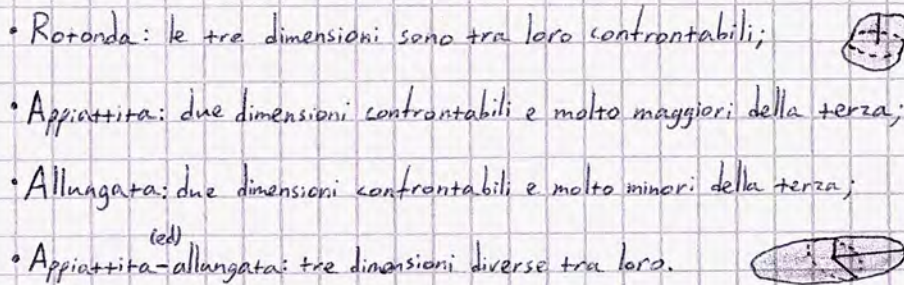 • Rotonda: le tre dimensioni sono tra loro confrontabili;
• Appiattita: due dimensioni confrontabili e molto maggiori della terza;
• Allungata: due dimensioni confrontabili e molto minori della terza;
(ed)
• Appiattita-allungata: tre dimensioni diverse tra loro.